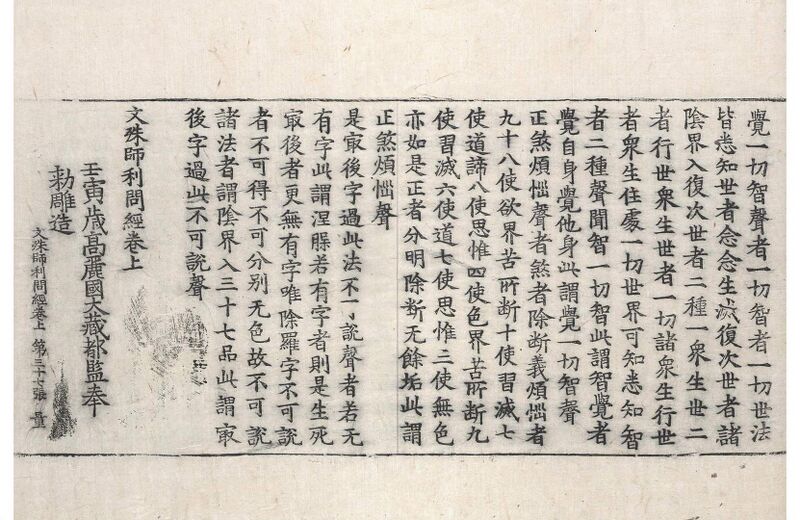 覺一切智聲者一切智者一切世法
皆悉知世者念念生滅復次世者諸
陰界入復次世者二種一衆生世二
者行世衆生世者一切諸衆生行世
者衆生住處一切世界可知悉知智
者二種聲聞智一切智此謂智覺者
覺自身覺他身此謂覺一切智聲
正煞煩惱聲者煞者除斷義煩惱者
九十八使欲界苦所斷十使習滅七
使道諦八使思惟四使色界苦所斷九
使習滅六使道七使思惟三使無色
亦如是正者分明除斷无餘垢此謂
正煞煩惱聲
是㝡後字過此法不可說聲者若无
有字此謂涅槃若有字者則是生死
㝡後者更無有字唯除羅字不可說
者不可得不可分别无色故不可說
諸法者謂陰界入三十七品此謂㝡
後字過此不可說聲
文殊師利問經卷上
壬寅歲高麗國大藏都監奉
勑雕造
文殊師利問經卷上 第三十七張 量